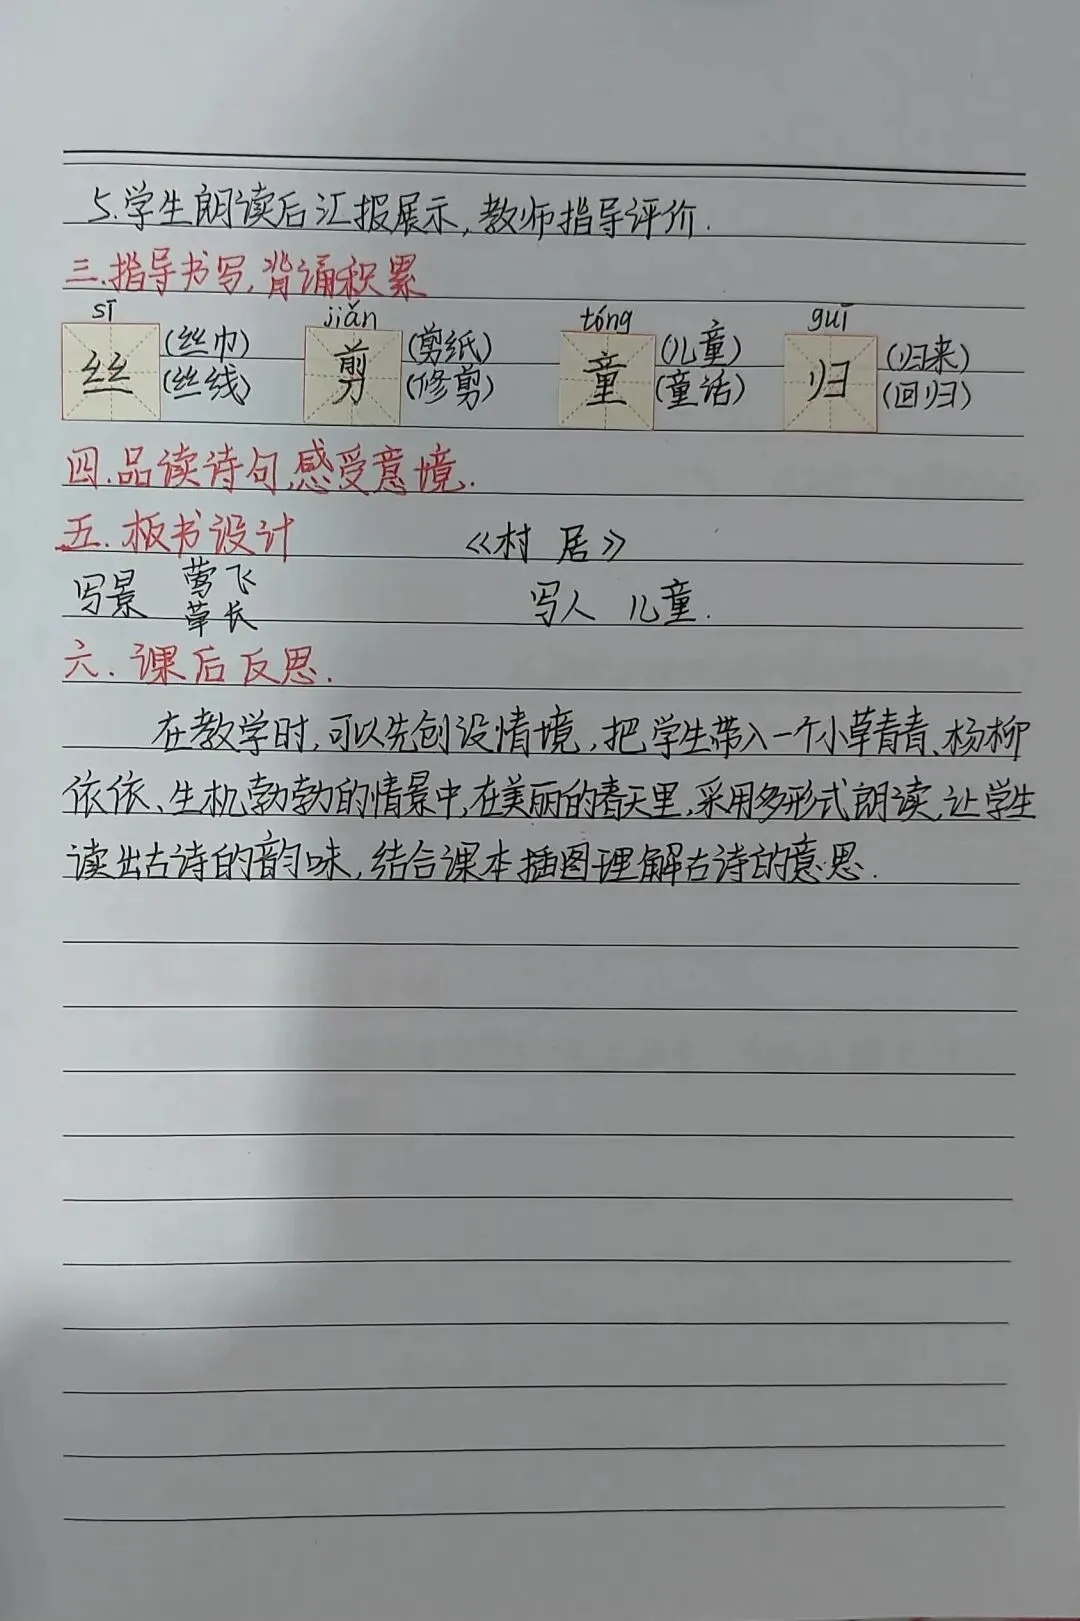 5.学生朗读后汇报展示,教师指导评价.
三.指导书写,背诵积累
sī jiǎn tóng guī
丝 (丝巾) 剪 (剪纸) 童 (儿童) 归 (归来)
(丝线) (修剪) (童话) (回归)
四.品读诗句,感受意境.
五.板书设计 《村居》
写景 莺飞 写人 儿童.
草长
六.课后反思.
在教学时,可以先创设情境,把学生带入一个小草青青、杨柳
依依、生机勃勃的情景中,在美丽的春天里,采用多形式朗读,让学生
读出古诗的韵味,结合课本插图理解古诗的意思.